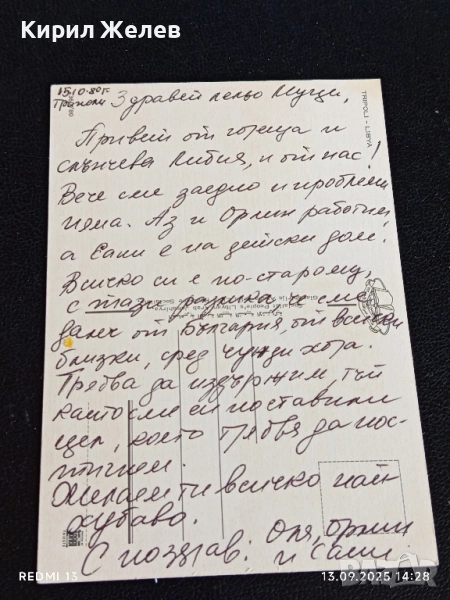 Кирил Желев
15.10.80г.
Триполи
Здравей лельо Муци,
TRIPOLI - LIBYA
Привет от гореща и
слънчева Либия, и от нас!
Вече сме заедно и проблеми
няма. Аз и Орлин работим,
а Сани е на детски дом.
Всичко си е по-старому,
с тази разлика, че сме
далеч от България, от всички
близки, сред чужди хора.
Трябва да издържим, тъй
като сме си поставили
цел, която трябва да пос-
тигнем.
Желаем ти всичко най-
хубаво.
С поздрав: Оля, Орлин
и Сани.
REDMI 13
13.09.2025 14:28